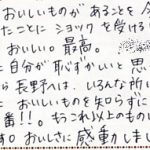 おいしいものが あることを 今
たことに ショックを受ける
おいしい。最高。
に自分が恥ずかしいと思
ら長野へは、いろんな所に
に おいしいものを知らずに
番!!。もうこれ以上のもの
す。おいしさに感動しまし